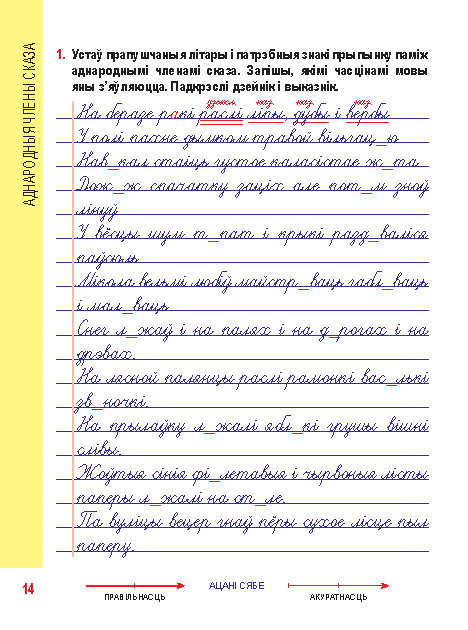 АДНАРОДНЫЯ ЧЛЕНЫ СКАЗА
1. Устаў прапушчаныя літары і патрэбныя знакі прыпынку паміж
аднароднымі членамі сказа. Запішы, якімі часцінамі мовы
яны з’яўляюцца. Падкрэслі дзейнік і выказнік.
дзеясл. наз. наз. наз.
На беразе ракі раслі ліпы, дубы і вербы.
У полі пахне дымком травой вільгац_ю
Нав_кал стаіць густое каласістае ж_та
Дож_ж спачатку заціх але пот_м зноў
лінуў
У вёсцы шум т_пат і крыкі разд_валіся
паўсюль
Мікола вельмі любіў майстр_ваць габл_ваць
і мал_ваць
Снег л_жаў і на палях і на д_рогах і на
дрэвах.
На лясной палянцы раслі рамонкі вас_лькі
зв_ночкі.
На прылаўку л_жалі ябл_кі грушы вішні
слівы.
Жоўтыя сінія фі_летавыя і чырвоныя лісты
паперы л_жалі на ст_ле.
Па вуліцы вецер гнаў пёры сухое лісце пыл
паперу.
14
АЦАНІ СЯБЕ
ПРАВІЛЬНАСЦЬ
АКУРАТНАСЦЬ